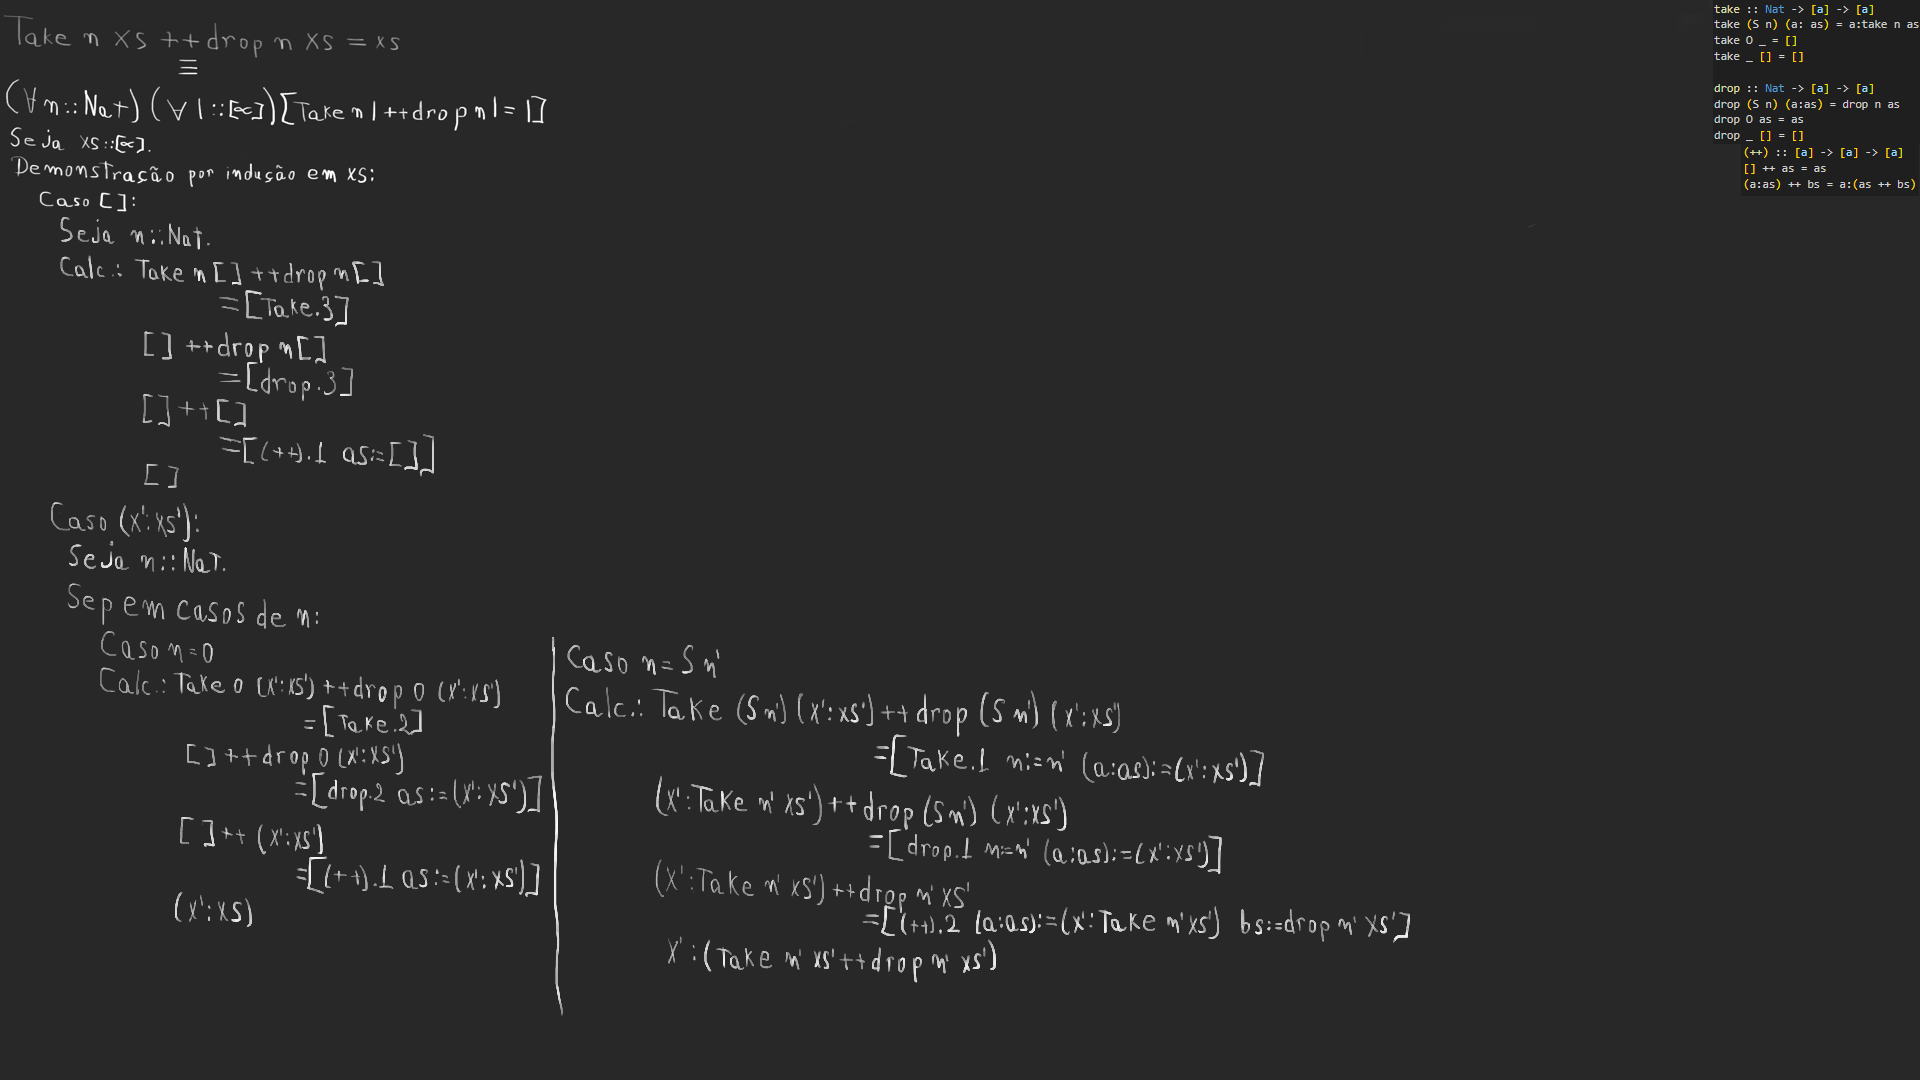 Take n xs ++ drop n xs = xs
≡
(∀n::Nat)(∀l::[α])[Take n l ++ drop n l = l]
Seja xs::[α].
Demonstração por indução em xs:
Caso []:
Seja n::Nat.
Calc.: Take n [] ++ drop n []
=[Take.3]
[] ++ drop n []
=[drop.3]
[] ++ []
=[(++).1 as:=[]]
[]
Caso (x':xs'):
Seja n::Nat.
Sep em casos de n:
Caso n=0
Calc.: Take 0 (x':xs') ++ drop 0 (x':xs')
=[Take.2]
[] ++ drop 0 (x':xs')
=[drop.2 as:=(x':xs')]
[] ++ (x':xs')
=[(++).1 as:=(x':xs')]
(x':xs)
Caso n=S n'
Calc.: Take (S n') (x':xs') ++ drop (S n') (x':xs')
=[Take.1 n:=n' (a:as):=(x':xs')]
(x':Take n' xs') ++ drop (S n') (x':xs')
=[drop.1 n:=n' (a:as):=(x':xs')]
(x':Take n' xs') ++ drop n' xs'
=[(++).2 (a:as):=(x':Take n' xs') bs:=drop n' xs']
x':(Take n' xs' ++ drop n' xs')
take :: Nat -> [a] -> [a]
take (S n) (a: as) = a:take n as
take O _ = []
take _ [] = []
drop :: Nat -> [a] -> [a]
drop (S n) (a:as) = drop n as
drop O as = as
drop _ [] = []
(++) :: [a] -> [a] -> [a]
[] ++ as = as
(a:as) ++ bs = a:(as ++ bs)